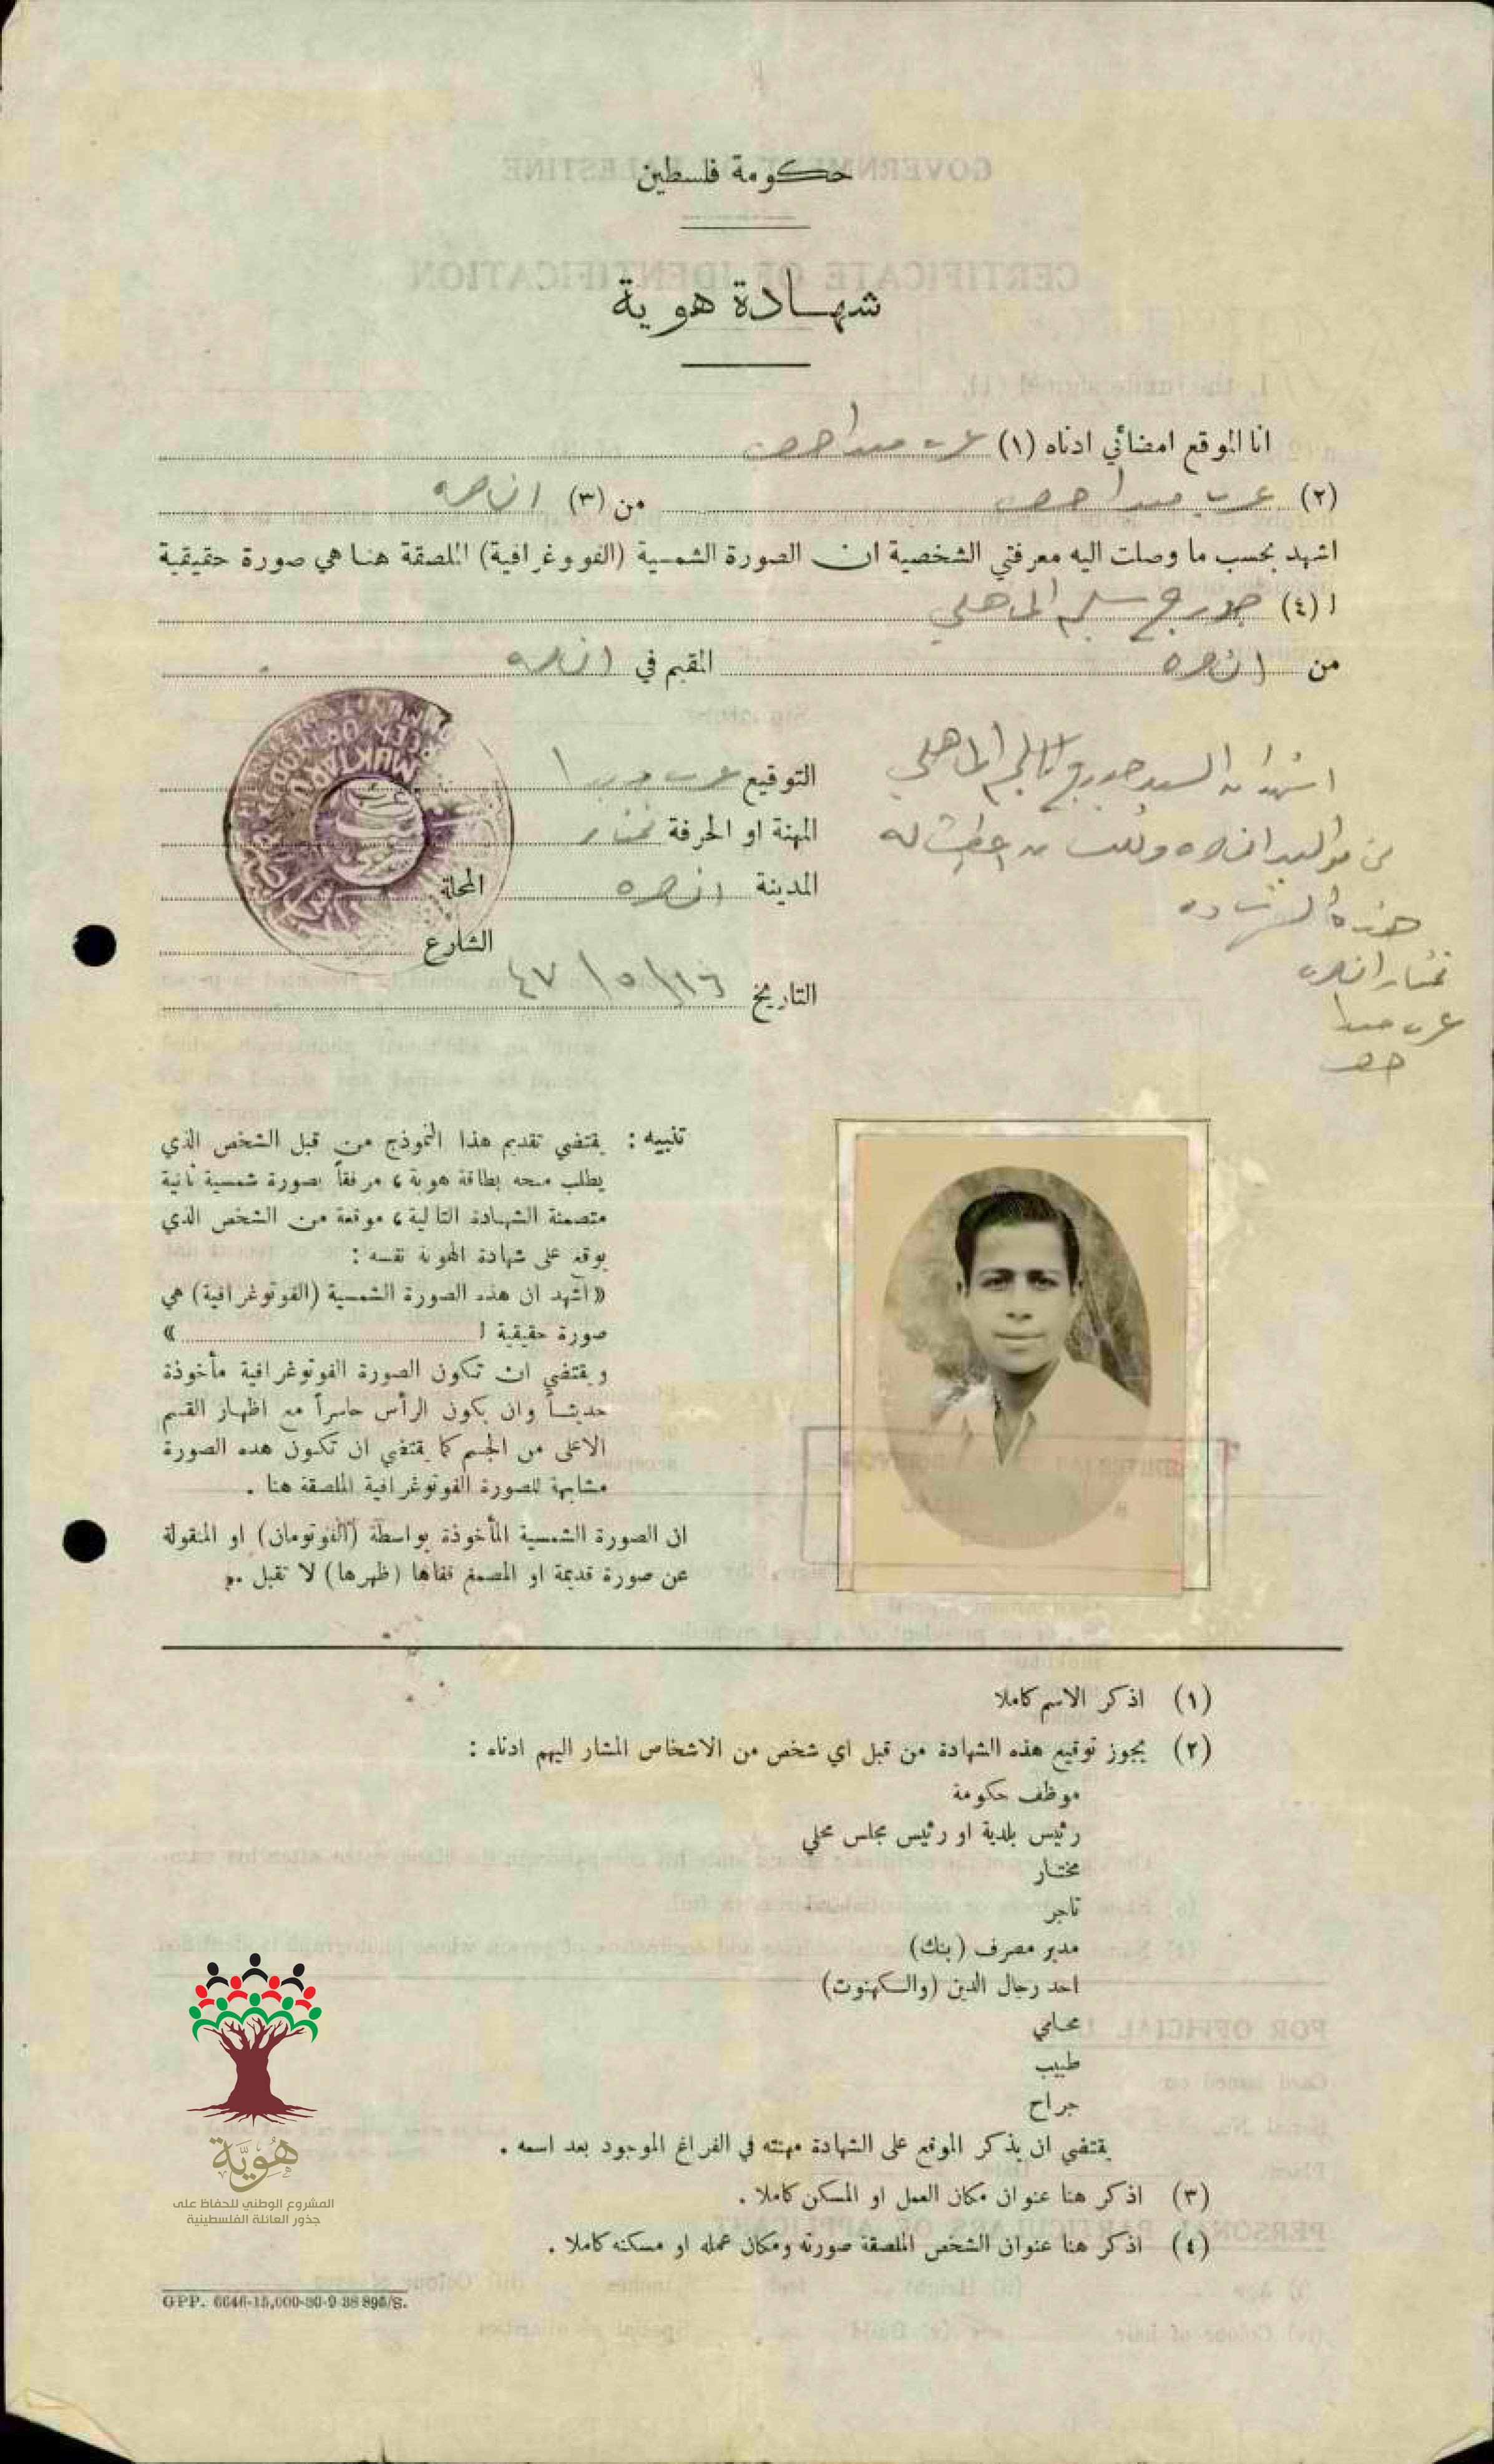 حكومة فلسطين
شهادة هوية
انا الموقع امضائي ادناه (١)
(٢) من (٣) الناصره
اشهد بحسب ما وصلت اليه معرفتي الشخصية ان الصورة الشمسية (الفوتوغرافية) الملصقة هنا هي صورة حقيقية
ل (٤) جورج سليم
من الناصره المقيم في الناصره
اشهد ان السيد جورج سليم
من مواليد الناصره
هذه الشهاده
مختار الناصره
التوقيع
المهنة او الحرفة مختار
المدينة الناصره المحلة
الشارع
التاريخ
MUKTAR
تنبيه : يقتضي تقديم هذا النموذج من قبل الشخص الذي
يطلب منحه بطاقة هوية ، مرفقاً بصورة شمسية ثانية
متضمنة الشهادة التالية ، موقعة من الشخص الذي
يوقع على شهادة الهوية نفسه :
« اشهد ان هذه الصورة الشمسية (الفوتوغرافية) هي
صورة حقيقية ل »
ويقتضي ان تكون الصورة الفوتوغرافية مأخوذة
حديثاً وان يكون الرأس حاسراً مع اظهار القسم
الاعلى من الجسم كما يقتضي ان تكون هذه الصورة
مشابهة للصورة الفوتوغرافية الملصقة هنا .
ان الصورة الشمسية المأخوذة بواسطة (الفوتومان) او المنقولة
عن صورة قديمة او المصمغ قفاها (ظهرها) لا تقبل .
(١) اذكر الاسم كاملا
(٢) يجوز توقيع هذه الشهادة من قبل اي شخص من الاشخاص المشار اليهم ادناه :
موظف حكومة
رئيس بلدية او رئيس مجلس محلي
مختار
تاجر
مدير مصرف (بنك)
احد رجال الدين (والكهنوت)
محامي
طبيب
جراح
يقتضي ان يذكر الموقع على الشهادة مهنته في الفراغ الموجود بعد اسمه .
(٣) اذكر هنا عنوان مكان العمل او المسكن كاملا .
(٤) اذكر هنا عنوان الشخص الملصقة صورته ومكان عمله او مسكنه كاملا .
هُوِيَّة
المشروع الوطني للحفاظ على
جذور العائلة الفلسطينية
GPP. 6646-15,000-30-9-38 895/S.